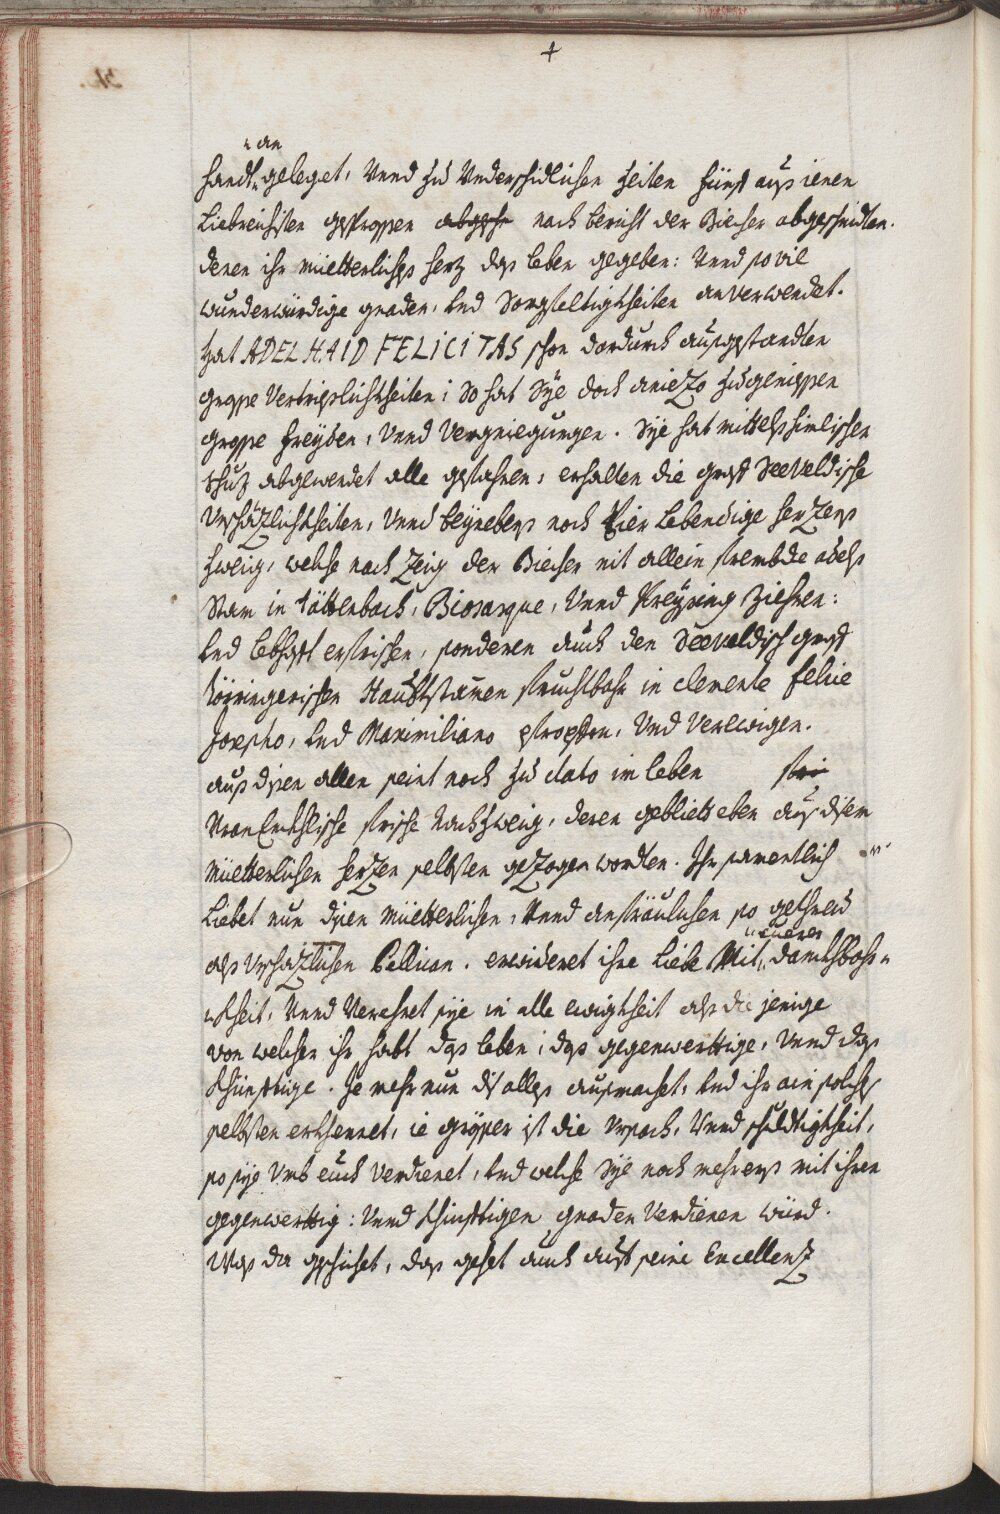 +
an
handt geleget, Vnnd zu Vnderschidlichen Zeiten fünf auß ienen
Liebreichsten gesProssen abgesch nach bericht der Biecher abgeschnidten.
denen ihr müetterliches herz das leben gegeben: Vnnd so vil
wunderwürdige gnaden, und Sorgfeltigkheiten anverwendet.
hat ADELHAID FELICITAS schon dardurch ausgestandten
grosse Vertrießlichkheiten; So hat Sÿe doch aniezo zugeniessen
grosse Freÿden, Vnnd Vergniegungen. Sÿe hat mittelß himlischen
Schuz abgewendet alle gefahren, erhalten die graff Seeveldische
Vrschäzlichkheiten, Vnnd beÿnebens noch Vier Lebendige herzens
Zweig, welche nach Zeig der Biecher nit allein frembde adels
Stam in Tättenbach, Biosasque, Vnnd Preÿsing Ziehren:
und lebhafft erfrischen, sonderen auch den Seeveldisch graff
törringerischen Haubtstamen fruchtbahr in clemente felice
Josepho, und Maximiliano gProssen, Und Verewigen.
aus disen allen seint noch zu dato im leben fri
Vranlische frische Nachzweig, deren geblieth eben aus disem
Müetterlichen herzen selbsten gezogen worden. Ihr samentlich
Liebet nun disen Müetterlichen, Vnnd anfräulichen so gethreu
als Vrschazlichen Pellican. erwideret ihre Liebe Mit euerer danckhbahr
kheit, Vnnd Verehret sÿe in alle ewigkheit als die jenige
von welcher ihr habt das leben; das gegenwerttige, Vnnd das
khünfftige. Je mehr nun dis alles ausmachet, und ihr ain solches
selbsten erkhennet, ie grösser ist die Vrsach, Vnnd schuldtigkheit,
so sÿe Vmb euch Verdienet, und welche Sÿe noch mehrers mit ihren
gegenwerttig: Vnnd khinfftigen gnaden Verdienen würd.
Was da geschihet, das gehet auch auf seine Excellenz